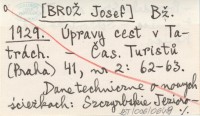 [BROŻ Josef] Bż.
1929. Úpravy cest v Ta-
trách. Čas. Turistů
(Praha) 41, nr 2: 62-63.
Dane techniczne o nowych
ścieżkach: Szczyrbskie Jezioro-